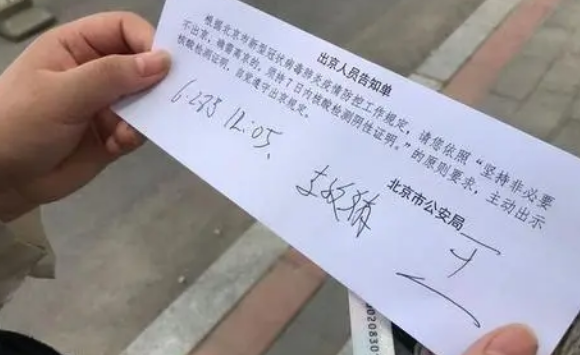 出京人员告知单
根据北京市新型冠状病毒肺炎疫情防控工作规定，请您依照“坚持非必要
不出京，确需离京的，须持7日内核酸检测阴性证明。”的原则要求，主动出示
核酸检测证明，自觉遵守出京规定。
北京市公安局
12:05.